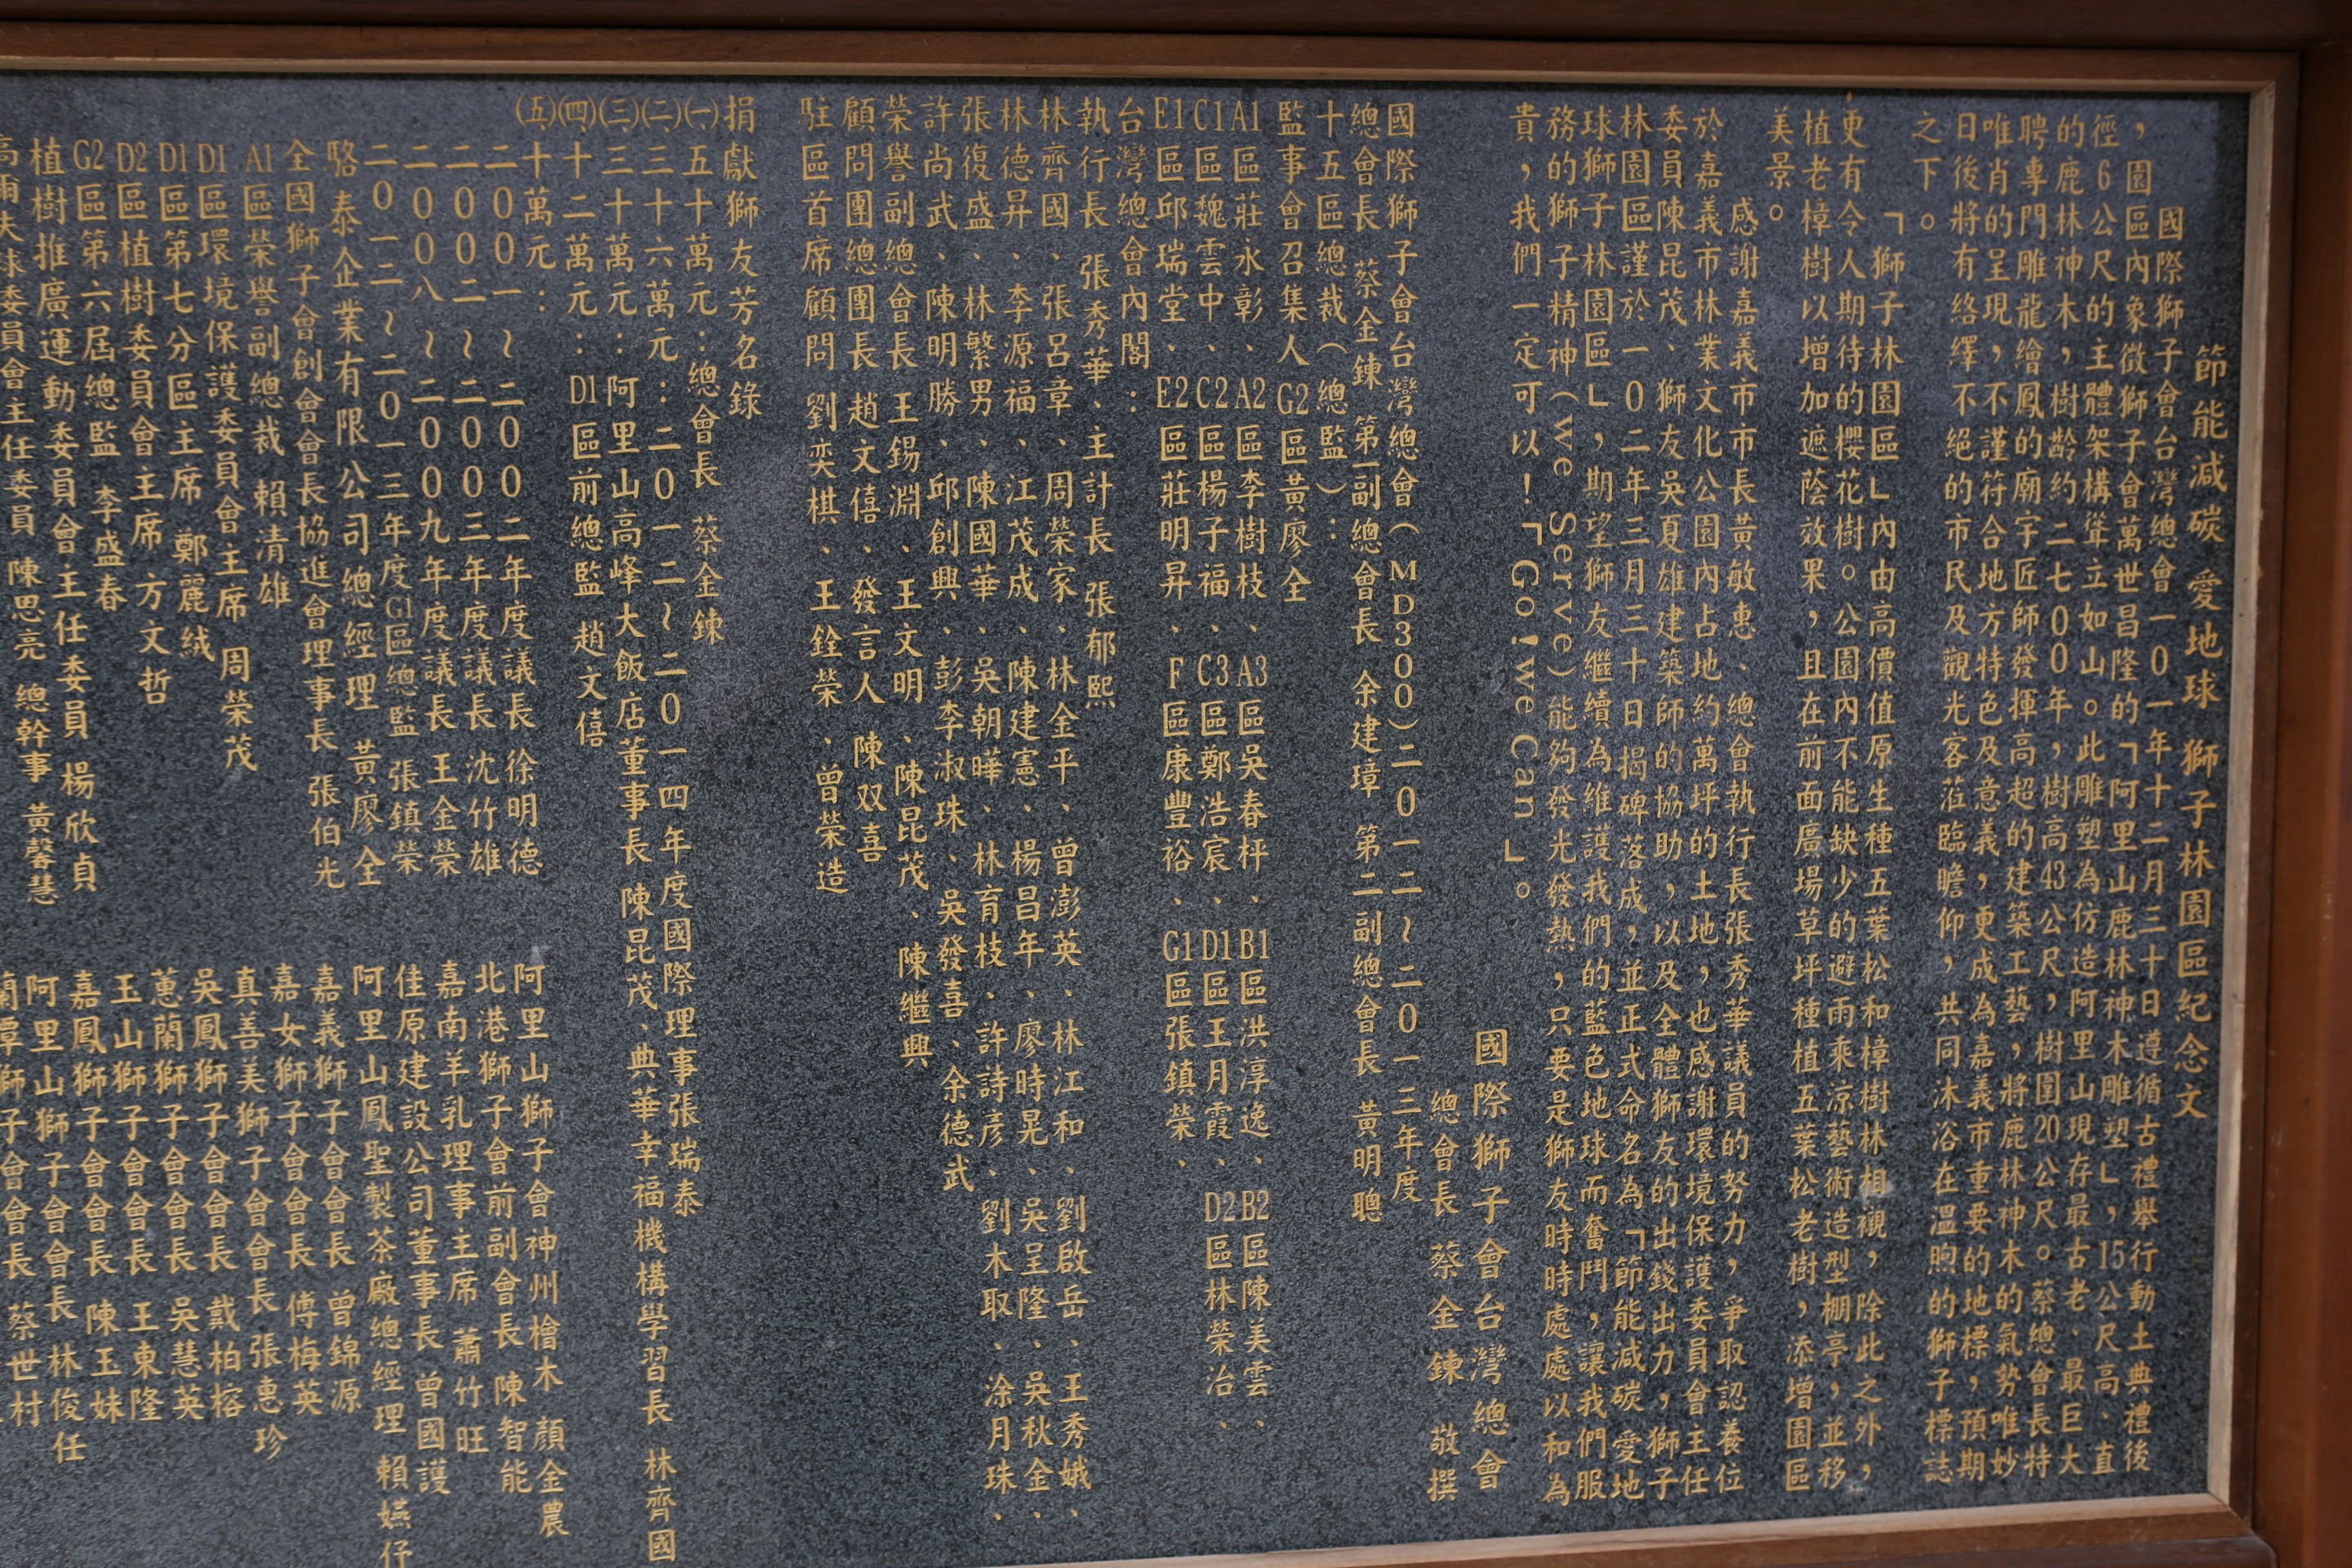 節能減碳 愛地球 獅子林園區紀念文
國際獅子會台灣總會一0一年十二月三十日遵循古禮舉行動土典禮後
，園區內象徵獅子會萬世昌隆的「阿里山鹿林神木雕塑」，15公尺高、直
徑6公尺的主體架構聳立如山。此雕塑為仿造阿里山現存最古老、最巨大
的鹿林神木，樹齡約二七00年，樹高43公尺，樹圍20公尺。蔡總會長特
聘專門雕龍繪鳳的廟宇匠師發揮高超的建築工藝，將鹿林神木的氣勢唯妙
唯肖的呈現，不謹符合地方特色及意義，更成為嘉義市重要的地標，預期
日後將有絡繹不絕的市民及觀光客蒞臨瞻仰，共同沐浴在溫煦的獅子標誌
之下。
「獅子林園區」內由高價值原生種五葉松和樟樹林相襯，除此之外，
更有令人期待的櫻花樹。公園內不能缺少的避雨乘涼藝術造型棚亭，並移
植老樟樹以增加遮蔭效果，且在前面廣場草坪種植五葉松老樹，添增園區
美景。
感謝嘉義市市長黃敏惠、總會執行長張秀華議員的努力，爭取認養位
於嘉義市林業文化公園內占地約萬坪的土地，也感謝環境保護委員會主任
委員陳昆茂、獅友吳夏雄建築師的協助，以及全體獅友的出錢出力，獅子
林園區謹於一0二年三月三十日揭碑落成，並正式命名為「節能減碳 愛地
球獅子林園區」，期望獅友繼續為維護我們的藍色地球而奮鬥，讓我們服
務的獅子精神（We Serve）能夠發光發熱，只要是獅友時時處處以和為
貴，我們一定可以！「Go!We Can」。
國際獅子會台灣總會
總會長 蔡金鍊 敬撰
國際獅子會台灣總會（MD300）二0一二～二0一三年度
總會長 蔡金鍊 第一副總會長 余建璋 第二副總會長 黃明聰
十五區總裁（總監）：
監事會召集人 G2區黃廖全
A1區莊永彰、A2區李樹枝、A3區吳春枰、B1區洪淳逸、B2區陳美雲、
C1區魏雲中、C2區楊子福、C3區鄭浩宸、D1區王月霞、D2區林榮治、
E1區邱瑞堂、E2區莊明昇、F區康豐裕、G1區張鎮榮、
台灣總會內閣：
執行長 張秀華、主計長 張郁熙
林齊國、張呂章、周榮家、林金平、曾澎英、林江和、劉啟岳、王秀娥、
林德昇、李源福、江茂成、陳建憲、楊昌年、廖時晃、吳呈隆、吳秋金、
張復盛、林繁男、陳國華、吳朝曄、林育枝、許詩彥、劉木取、涂月珠、
許尚武、陳明勝、邱創興、彭李淑珠、吳發喜、余德武
榮譽副總會長 王錫淵、王文明、陳昆茂、陳繼興
顧問團總團長 趙文僖、發言人 陳双喜
駐區首席顧問 劉奕棋、王銓榮、曾榮造
捐獻獅友芳名錄
㈠、五十萬元：總會長 蔡金鍊
㈡、三十六萬元：二0一二～二0一四年度國際理事張瑞泰
㈢、三十萬元：阿里山高峰大飯店董事長 陳昆茂、典華幸福機構學習長 林齊國
㈣、十二萬元：D1區前總監 趙文僖
㈤、十萬元：
二00一～二00二年度議長 徐明德
二00二～二00三年度議長 沈竹雄
二00八～二00九年度議長 王金榮
二0一二～二0一三年度G1區總監 張鎮榮
駱泰企業有限公司 總經理 黃廖全
全國獅子會創會會長協進會理事長 張伯光
A1區榮譽副總裁 賴清雄
D1區環境保護委員會主席 周榮茂
D1區第七分區主席 鄭麗絨
D2區植樹委員會主席 方文哲
G2區第六屆總監 李盛春
植樹推廣運動委員會主任委員 楊欣貞
高爾夫球委員會主任委員 陳思亮 總幹事 黃馨慧
阿里山獅子會神州檜木 顏金農
北港獅子會前副會長 陳智能
嘉南羊乳理事主席 蕭竹旺
佳原建設公司董事長 曾國護
阿里山鳳聖製茶廠總經理 賴嬿伃
嘉義獅子會會長 曾錦源
嘉女獅子會會長 傅梅英
真善美獅子會會長 張惠珍
吳鳳獅子會會長 戴柏榕
蕙蘭獅子會會長 吳慧英
玉山獅子會會長 王東隆
嘉鳳獅子會會長 陳玉妹
阿里山獅子會會長 林俊任
蘭潭獅子會會長 蔡世村